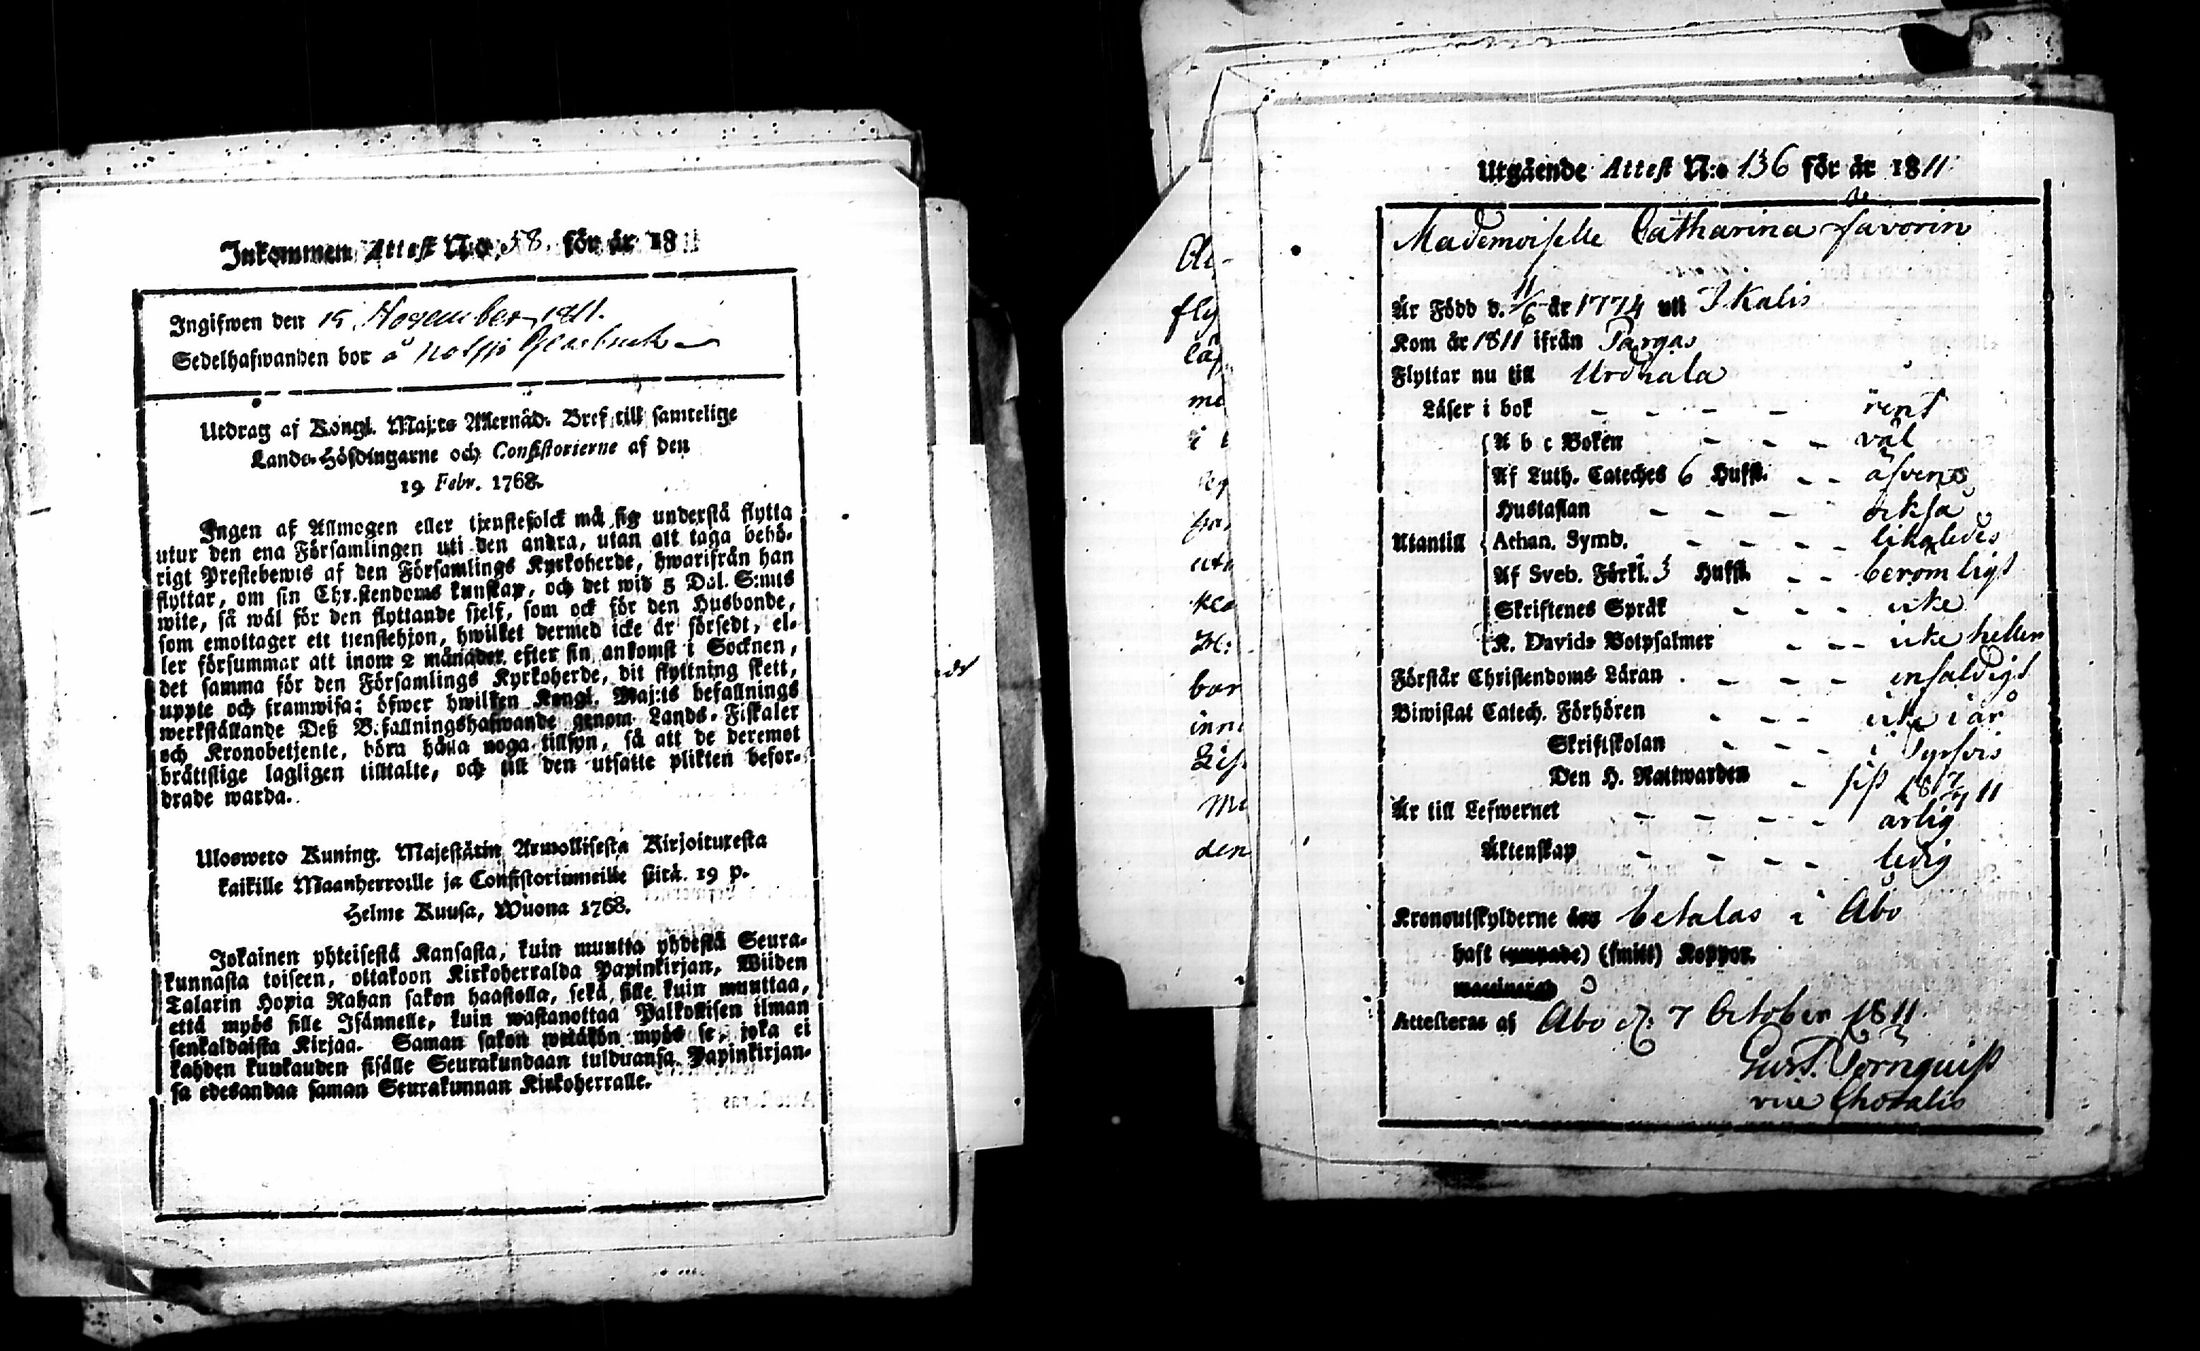 Inkommen Attest N:o 58. för år 1811
Ingifwen den 15 November 1811.
Sedelhafwanden bor å Notsjö Glasbruk
Utdrag af Kongl. Maj:ts Allernåd. Bref till samtelige
Lands-Höfdingarne och Consistorierne af den
19 Febr. 1768.
Ingen af Allmogen eller tjenstefolck må sig understå flytta
utur den ena Församlingen uti den andra, utan att taga behö-
rigt Prestebewis af den Församlings Kyrkoherde, hwarifrån han
flyttar, om sin Christendoms kunskap, och det wid 5 Dal. S:mts
wite, så wäl för den flyttande sjelf, som ock för den Husbonde,
som emottager ett tienstehjon, hwilket dermed icke är försedt, el-
ler försummar att inom 2 månader efter sin ankomst i Socknen,
det samma för den Församlings Kyrkoherde, dit flyttning skett,
uppte och framwisa; öfwer hwilken Kongl. Maj:ts befallnings
werkställande Deß Befallningshafwande genom Lands-Fiskaler
och Kronobetjente, böra hålla noga tillsyn, så att de deremot
bråttslige lagligen tilltalte, och till den utsatte plikten befor-
drade warda.
Ulosweto Kuning. Majestätin Armollisesta Kirjoituxesta
kaikille Maanherroille ja Consistoriumeille siitä 19 p.
Helme Kuusa, Wuona 1768.
Jokainen yhteisestä Kansasta, kuin muutta yhdestä Seura-
kunnasta toiseen, ottakoon Kirkoherralda Papinkirjan, Wiiden
Talarin Hopia Rahan sakon haastolla, sekä sille kuin muuttaa,
että myös sille Isännelle, kuin wastanottaa Palkollisen ilman
senkaldaista Kirjaa. Saman sakon wetäkön myös se, joka ei
kahden kuukauden sisälle Seurakundaan tulduansa Papinkirjan-
sa edesandaa saman Seurakunnan Kirkoherralle.
Utgående Attest N:o 136 för år 1811
Mademoiselle Catharina Favorin
Är Född d. 11/6 år 1774 uti Ikalis
Kom år 1811 ifrån Pargas
Flyttar nu till Urdhiala
Läser i bok - - - - rent
A b c Boken - - - väl
Af Luth. Cateches 6 Hufst. - - äfven
Hustaflan - - - - också
Utantill Athan. Symb. - - - - likaledes
Af Sveb. Förkl. 3 Hufst. - - berömligt
Skriftenes Språk - - - icke
K. Davids Botpsalmer - - - icke heller
Förstår Christendoms Läran - - - - enfaldigt
Biwistat Catech. Förhören - - - icke i år
Skriftskolan - - - i Tyrfvis
Den H. Nattwarden - sist 18 7/7 11
Är till Lefwernet - - - - - ärlig
Äktenskap - - - - ledig
Kronoutskylderne betalas i Åbo
haft (smitt) Koppor.
Attesteras af Åbo d: 7 October 1811
Gust. Törnquist
vice Choralis